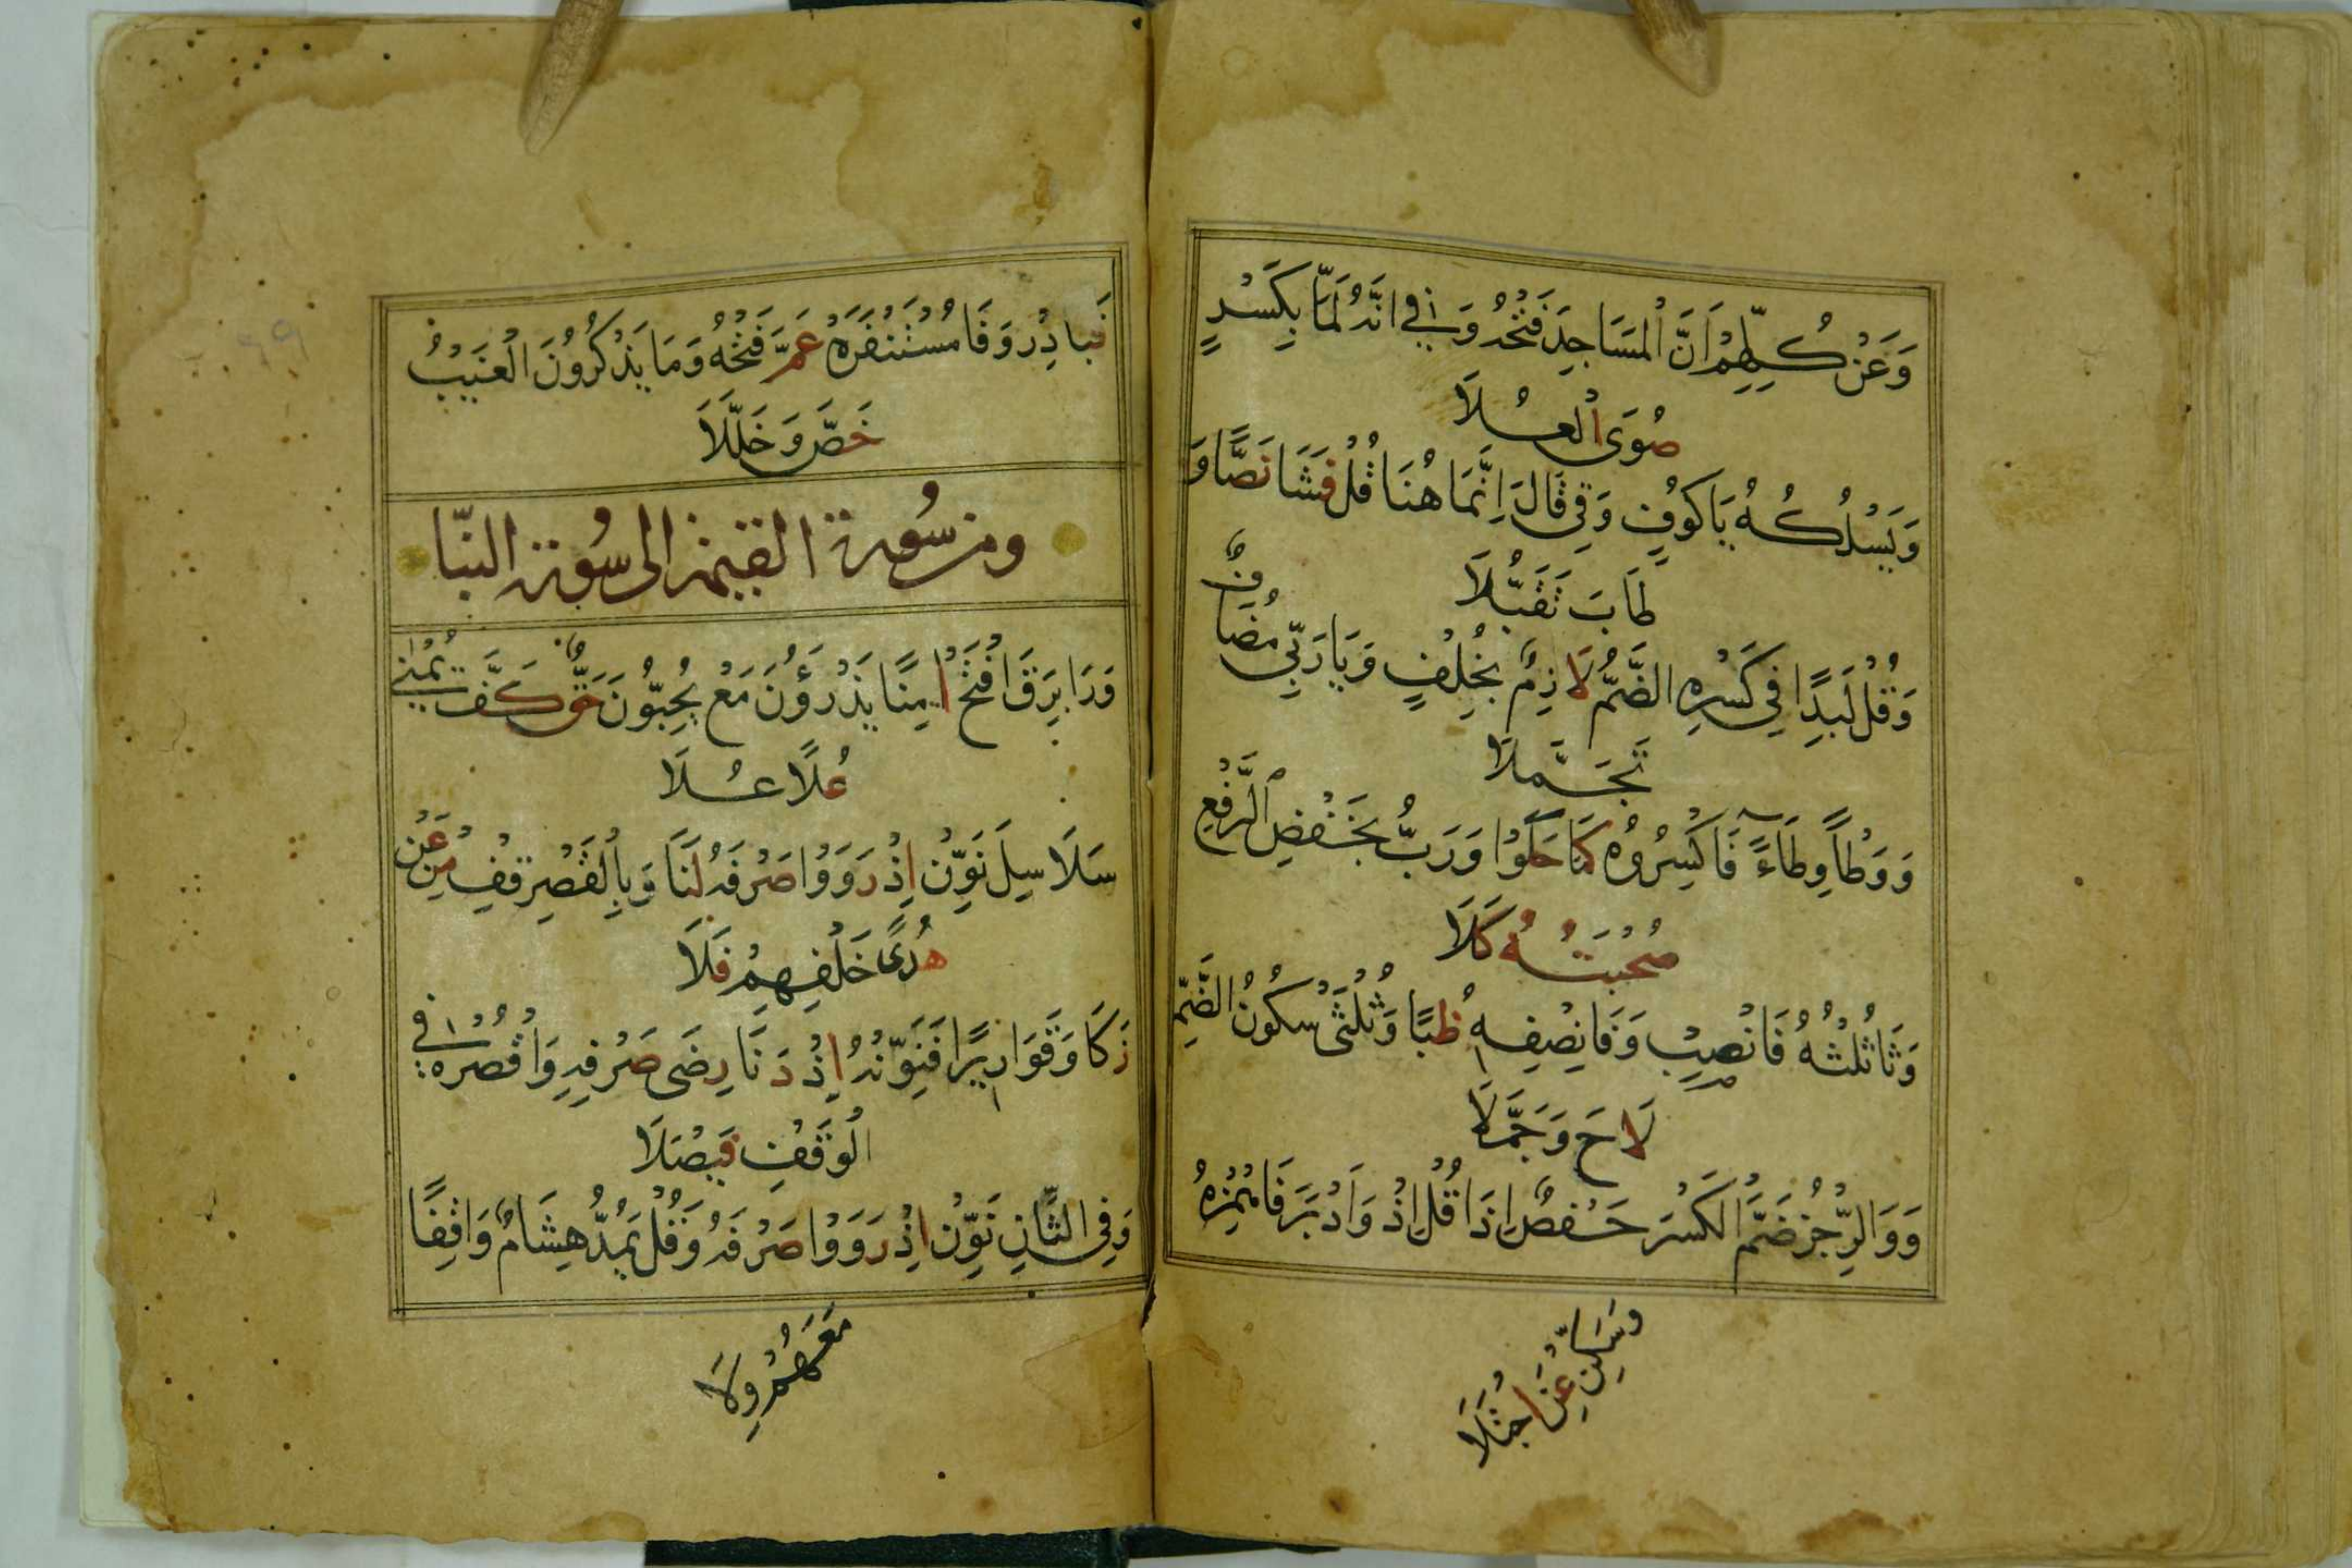 وَعَنْ كُلِّهِمْ اَنَّ الْمَسَاجِدَ فَتْحُهُ وَفِي اَنَّهُ لَمَّا بِكَسْرٍ
صُوَى الْعُلَا
وَيَسْلُكْهُ يَا كُوفٍ وَفِي قَالَ اِنَّمَا هُنَا قُلْ فَشَا نَصًّا وَ
طَابَ تَقَبُّلَا
وَقُلْ لُبَدًا فِي كَسْرِهِ الضَّمُّ لَازِمٌ بِخُلْفٍ وَيَا رَبِّي مُضَافٌ
تَجَمَّلَا
وَوَطْأً وِطَاءً فَاكْسِرُوهُ كَمَا حَكَوْا وَرَبُّ بِخَفْضِ الرَّفْعِ
صُحْبَتُهُ كَلَا
وَثَا ثُلْثُهُ فَانْصِبْ وَفَا نِصْفِهِ ظُبًا وَثُلْثَيْ سُكُونُ الضَّمِّ
لَاحَ وَجَمَّلَا
وَوَالرِّجْزَ ضَمَّ الْكَسْرَ حَفْصٌ اِذَا قُلِ اِذْ وَاَدْبَرَ فَاهْمِزْهُ
وَسَكِّنْ عَنِ اجْتِلَا
فَبَادِرْ وَفَا مُسْتَنْفِرَهْ عَمَّ فَتْحُهُ وَمَا يَذْكُرُونَ الْغَيْبُ
خَصَّ وَخَلَّلَا
ومن سورة القيمة الى سورة النبا
وَرَا بَرَقَ افْتَحْ اٰمِنًا يَذَرُونَ مَعْ يُحِبُّونَ حَقٌّ كَفَّ يُمْنٰى
عُلًا عَلَا
سَلَاسِلَ نَوِّنْ اِذْ رَوَوْا صَرْفَهُ لَنَا وَبِالْقَصْرِ قِفْ مِنْ عَنْ
هُدًى خُلْفُهُمْ فَلَا
زَكَا وَقَوَارِيرًا فَنَوِّنْهُ اِذْ دَنَا رِضَى صَرْفِهِ وَاقْصُرْهُ فِي
الْوَقْفِ فَيْصَلَا
وَفِي الثَّانِ نَوِّنْ اِذْ رَوَوْا صَرْفَهُ وَقُلْ يَمُدُّ هِشَامٌ وَاقِفًا
مَعَهُمْ وِلَا